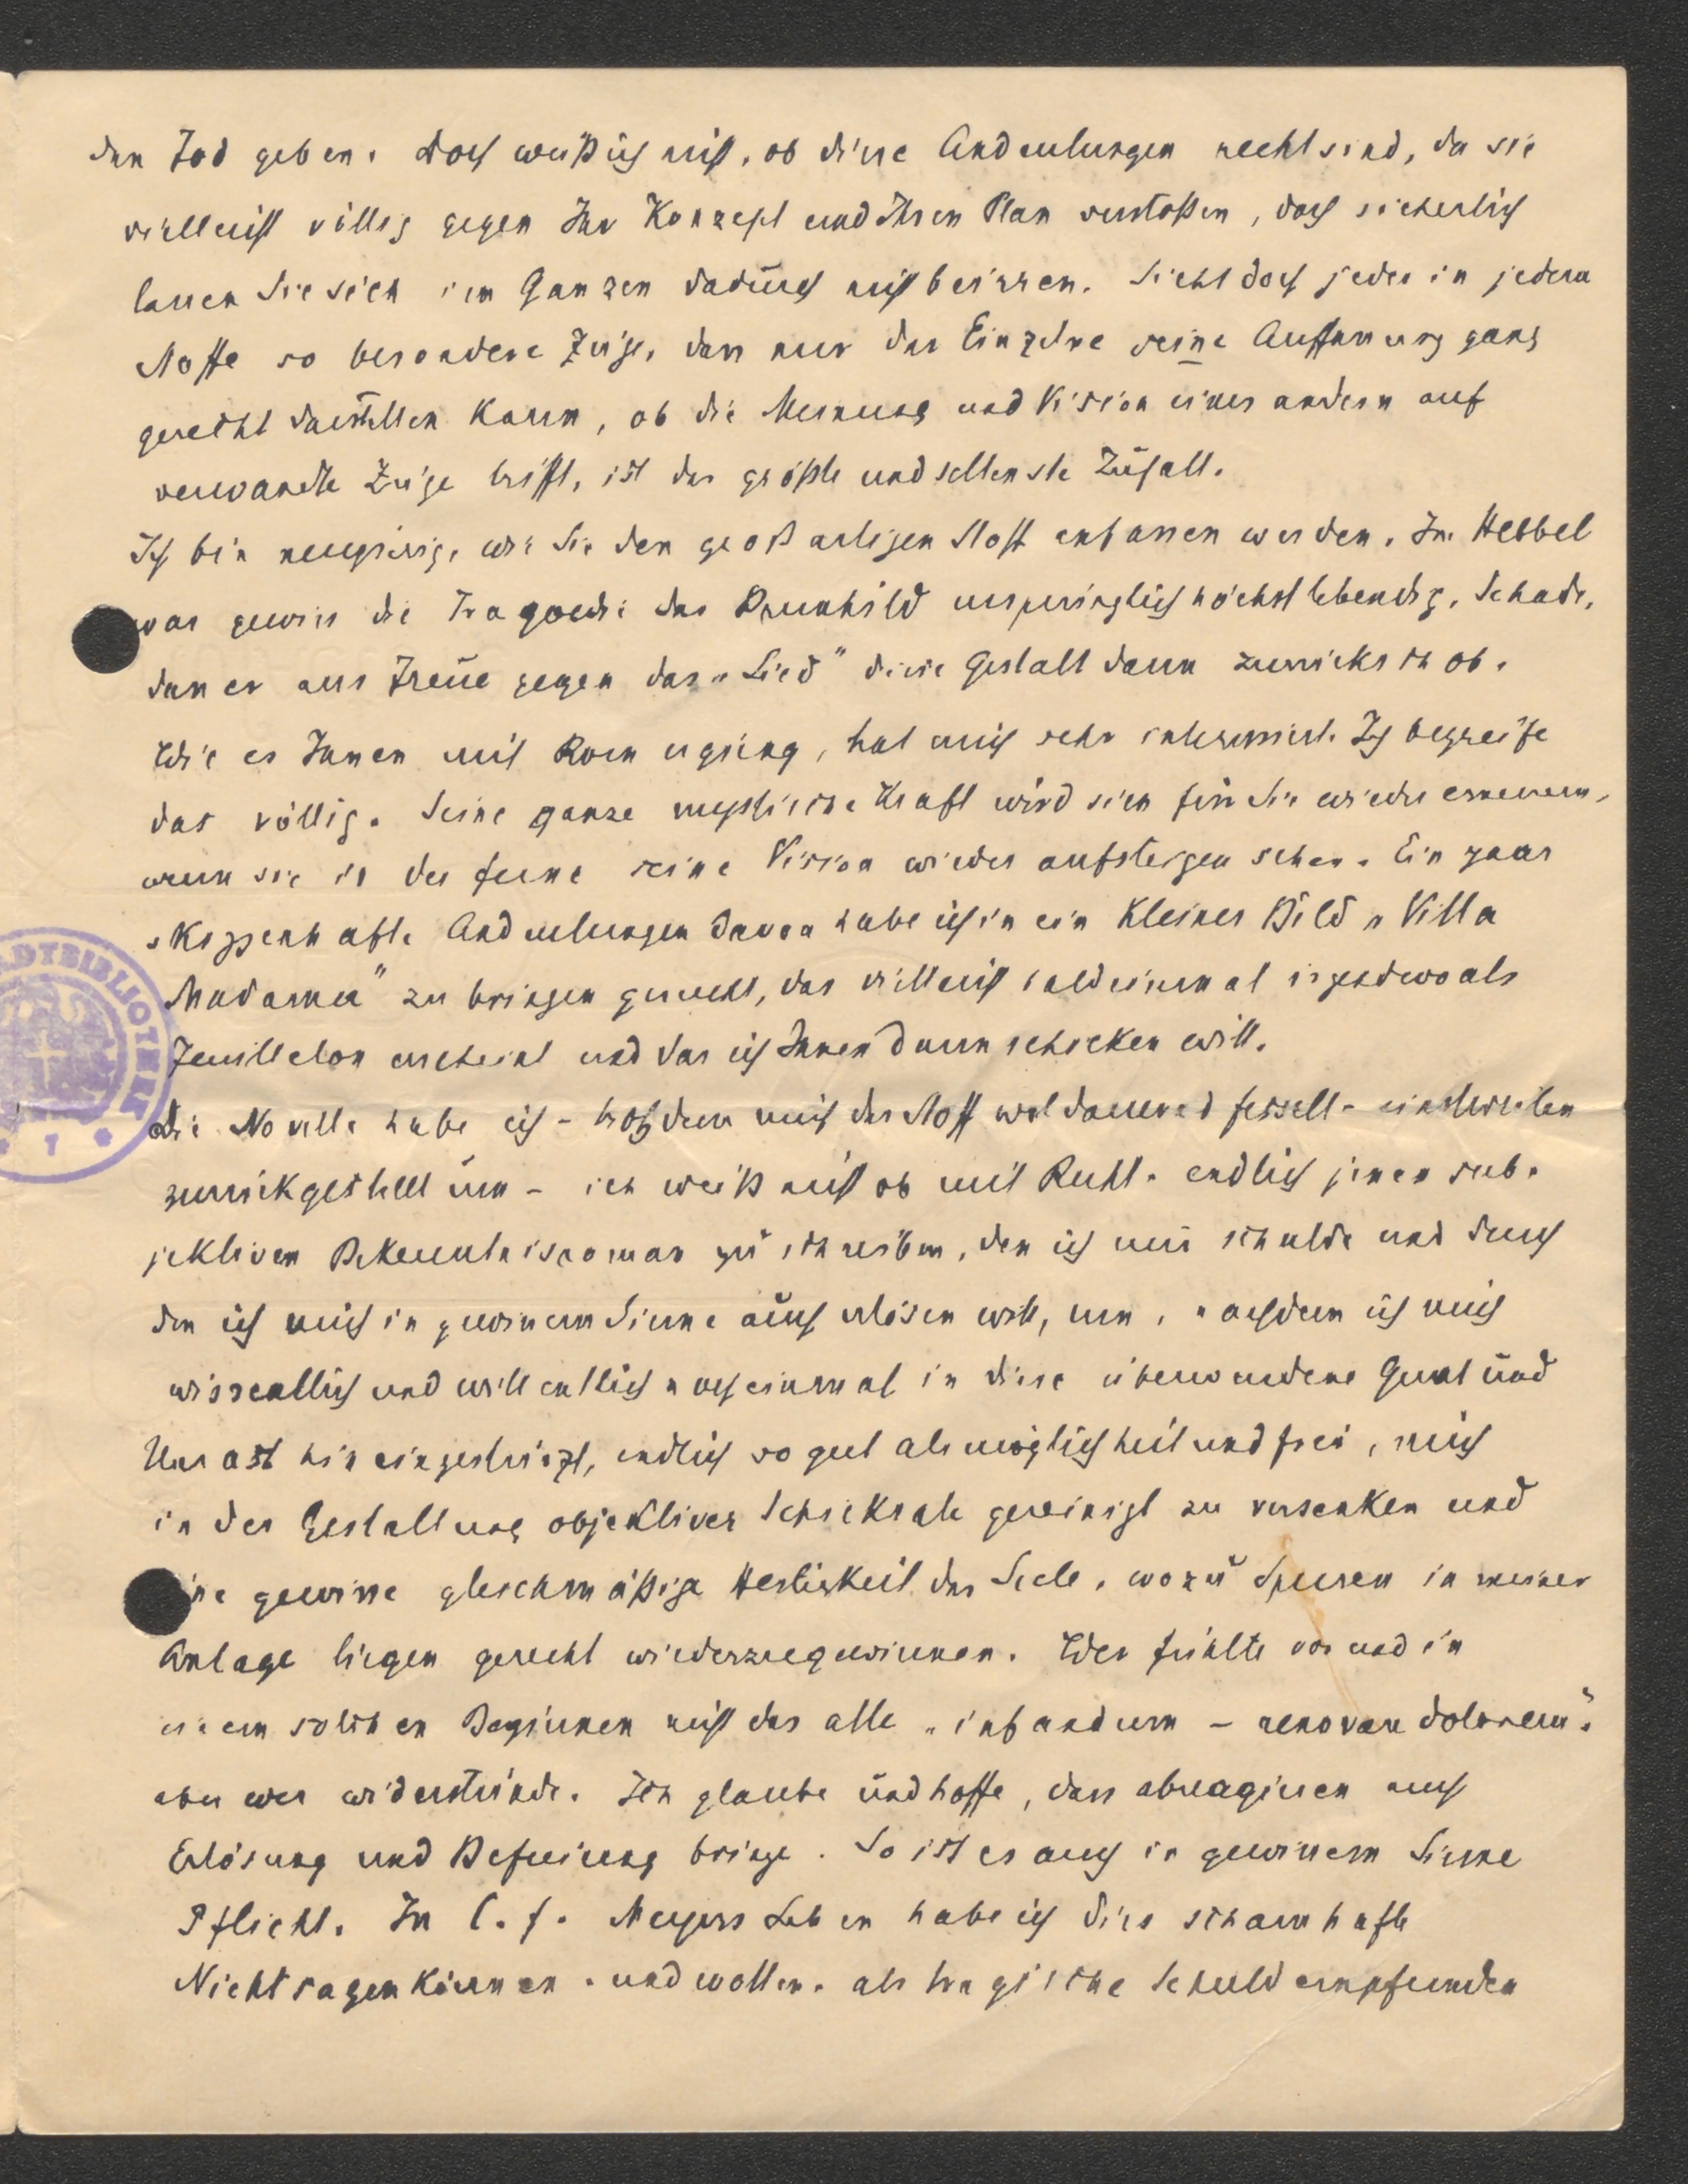 den Tod geben. Doch weiß ich nicht, ob diese Andeutungen recht sind, da sie
vielleicht völlig gegen Ihr Konzept und Ihren Plan verstoßen, doch sicherlich
lassen Sie sich im Ganzen dadurch nicht beirren. Sieht doch jeder in jedem
Stoffe so besondere Züge, dass nur der Einzelne seine Auffassung ganz
gerecht darstellen kann, ob die Meinung und Vision eines andern auf
verwandte Züge trifft, ist der größte und seltenste Zufall.
Ich bin neugierig, wie Sie den großartigen Stoff anfassen werden. In Hebbel
war gewiss die Tragoedie der Brunhild ursprünglich höchst lebendig. Schade,
dass er aus Treue gegen das „Lied" diese Gestalt dann zurückschob.
Wie es Ihnen mit Rom erging, hat mich sehr interessiert. Ich begreife
das völlig. Seine ganze mystische Kraft wird sich für Sie wieder erneuern,
wenn sie in der Ferne seine Vision wieder aufsteigen sehen. Ein paar
skizzenhafte Andeutungen davon habe ich in ein kleines Bild „Villa
Madama" zu bringen gesucht, das vielleicht bald einmal irgendwo als
Feuilleton erscheint und das ich Ihnen dann schicken will.
Die Novelle habe ich - trotzdem mich der Stoff wol dauernd fesselt - einstweilen
zurückgestellt um - ich weiß nicht ob mit Recht - endlich jenen sub-
jektiven Bekenntnisroman zu schreiben, den ich mir schulde und durch
den ich mich in gewissem Sinne auch erlösen will, um, nachdem ich mich
wissentlich und willentlich noch einmal in diese überwundene Qual und
Unrast hineingestürzt, endlich so gut als möglich heil und frei, mich
in der Gestaltung objektiver Schicksale gereinigt zu versenken und
eine gewisse gleichmäßige Herlichkeit der Seele, wozu Spuren in meiner
Anlage liegen gerecht wiederzugewinnen. Wer fühlte vor und in
einem solchen Beginnen nicht das alte „infandum - renovare dolorem".
aber wer widerstünde. Ich glaube und hoffe, dass abreagieren auch
Erlösung und Befreiung bringe. So ist es auch in gewissem Sinne
Pflicht. In C. F. Meyers Leben habe ich dies schamhafte
Nichtsagenkönnen - und wollen - als tragische Schuld empfunden